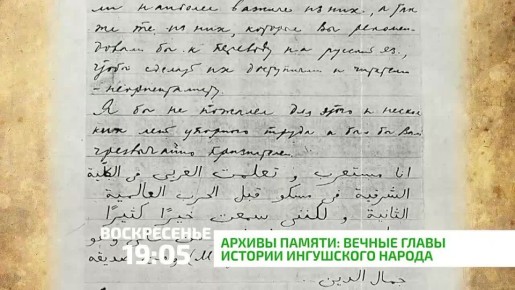 ли наиболее важные из них, а так
же те из них, которые Вы рекомен-
довали бы к переводу на русский яз.,
чтобы сделать их доступными и читателю
-неориенталисту.
Я бы не пожалел для этого и несколь
ких лет упорного труда и был бы Вам
чрезвычайно признателен.
انا مستعرب و تعلمت العربي في الكلية
الشرقية في مسكو قبل الحرب العالمية
الثانية و لكنني سمعت خيرًا كثيرًا
جمال الدين
ВОСКРЕСЕНЬЕ
19:05
АРХИВЫ ПАМЯТИ: ВЕЧНЫЕ ГЛАВЫ
ИСТОРИИ ИНГУШСКОГО НАРОДА